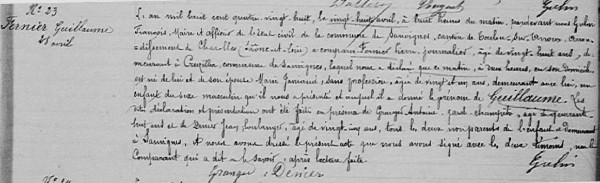 N° 23
Fernier Guillaume
28 avril
L'an mil huit cent quatre-vingt-huit, le vingt-huit avril, à huit heures du matin, pardevant nous Gelin
François, Maire et officier de l'état civil de la commune de Sauvignes, canton de Toulon-sur-Arroux, Arron-
-dissement de Charolles (Saône-et-Loire) a comparu Fernier Pierre, journalier, âgé de vingt-huit ans, de-
meurant à commune de Sauvignes, lequel nous a déclaré que ce matin, à deux heures, en son domicile
est né de lui et de son épouse Marie sans profession, âgée de vingt-et-un ans, demeurant avec lui, un
enfant du sexe masculin qu'il nous a présenté et auquel il a donné le prénom de Guillaume. Les
dites déclaration et présentation ont été faites en présence de Granger Antoine, garde-champêtre, âgé de
huit ans et de Denier Jean, boulanger, âgé de vingt-cinq ans, tous les deux non parents de l'enfant et demeurant
à Sauvignes, et nous avons dressé le présent acte que nous avons signé avec les deux témoins, non le
Comparant qui a dit ne le savoir, après lecture faite.
Granger Denier Gelin